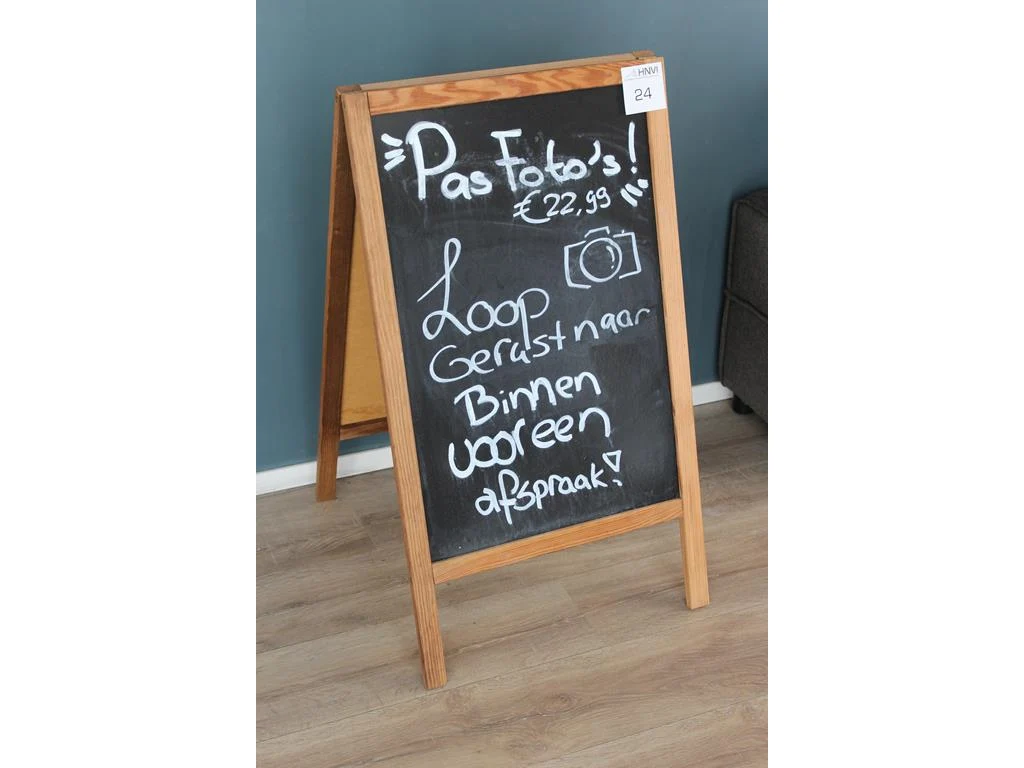 HNVI
24
Pas Foto's!
€22,99
Loop
Gerust naar
Binnen
voor een
afspraak!